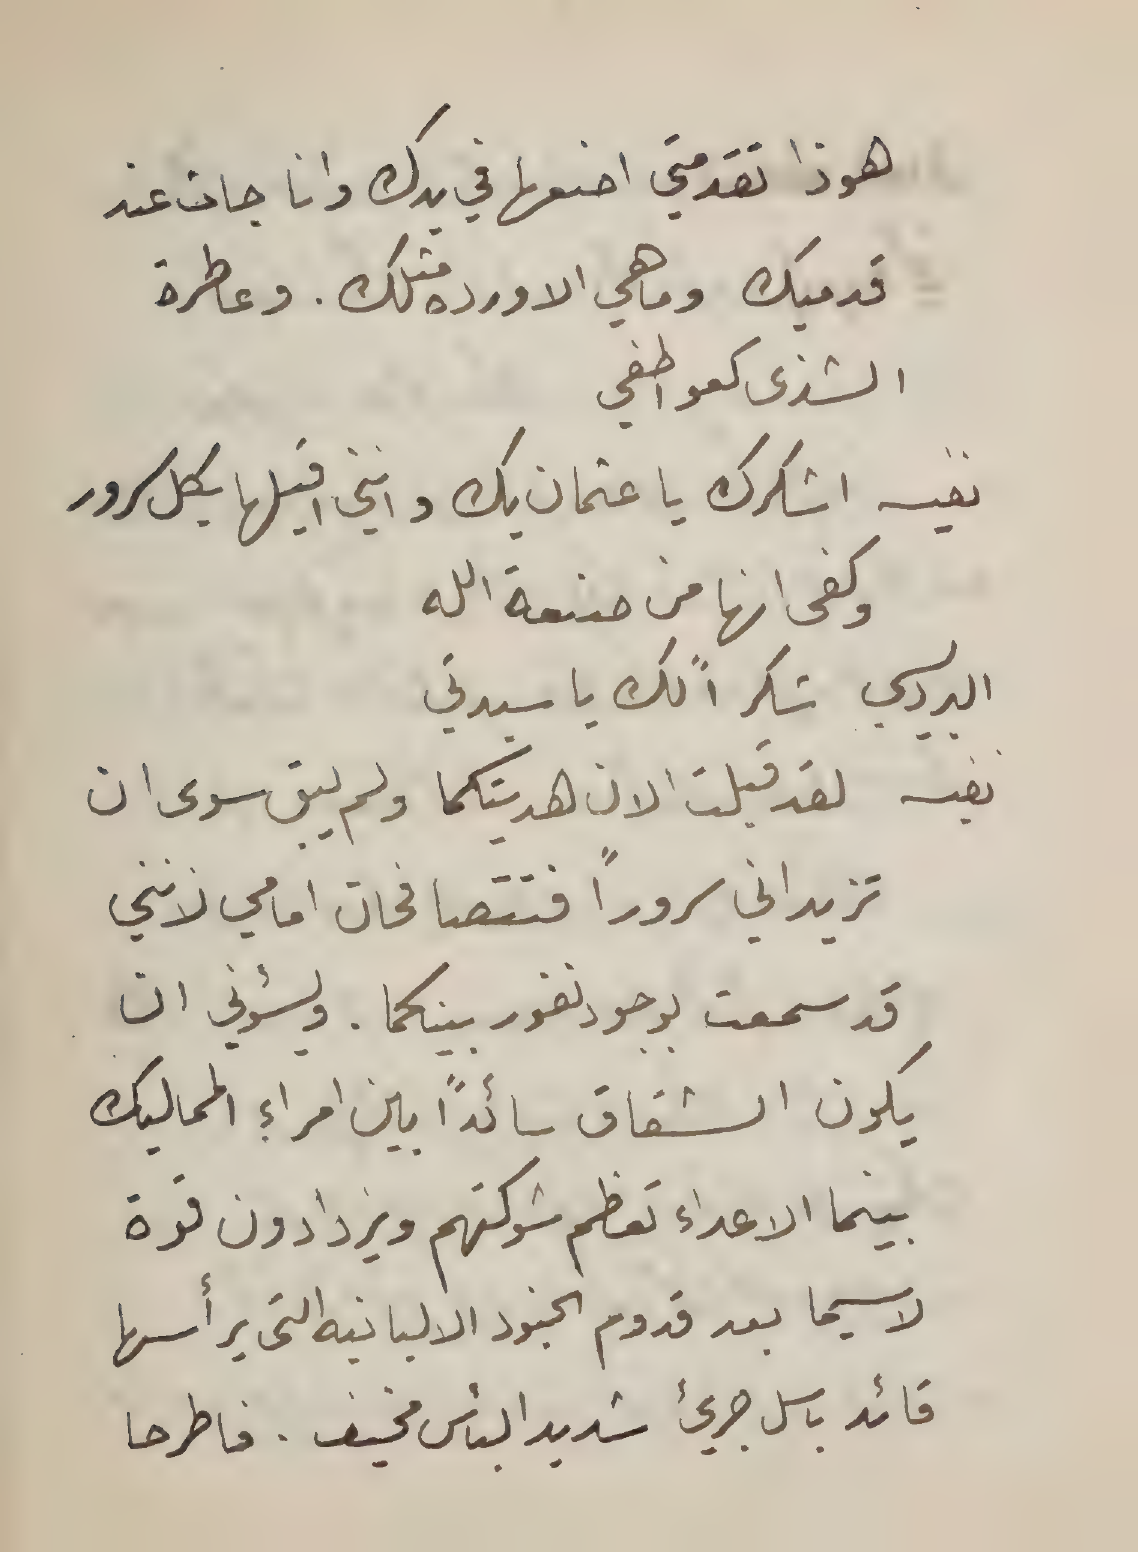 هوذا تقدمتي اضعها في يدك وانا جاث عند
قدميك وما هي الا ورده مثلك . وعاطرة
الشذى كعواطفي
نفيسه اشكرك يا عثمان بك وانني اقبلها بكل سرور
وكفى انها من صنعة الله
البرديسي شكراً لك يا سيدتي
نفيسه لقد قبلت الان هديتكما ولم يبق سوى ان
تزيداني سروراً فتتصافحان امامي لانني
قد سمعت بوجود نفور بينكما . ويسؤني ان
يكون الشقاق سائداً بين امراء المماليك
بينما الاعداء تعظم شوكتهم ويزدادون قوة
لاسيما بعد قدوم الجنود الالبانيه التي يرأسها
قائد باسل جريئ شديد البأس مخيف . فاطرحا